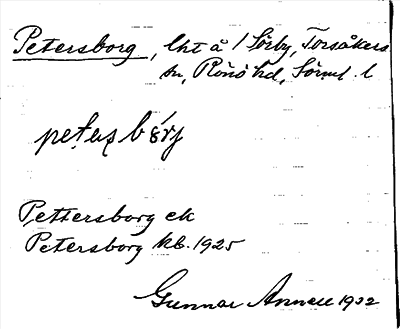 Petersborg, lht å 1 Sörby, Torsåkers
sn, Rönö hd, Sörml. l
Pettersborg ek
Petersborg kb. 1925
Gunnar Annell 1932